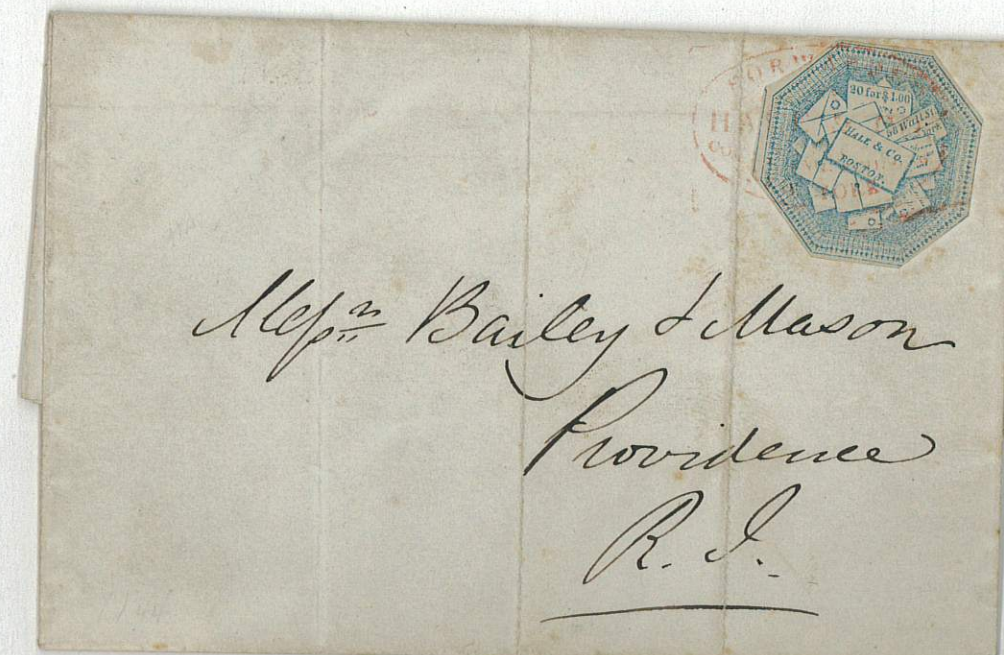 20 for $1.00
HALE & CO.
BOSTON.
YORK
Messrs Bailey & Mason
Providence
R.I.